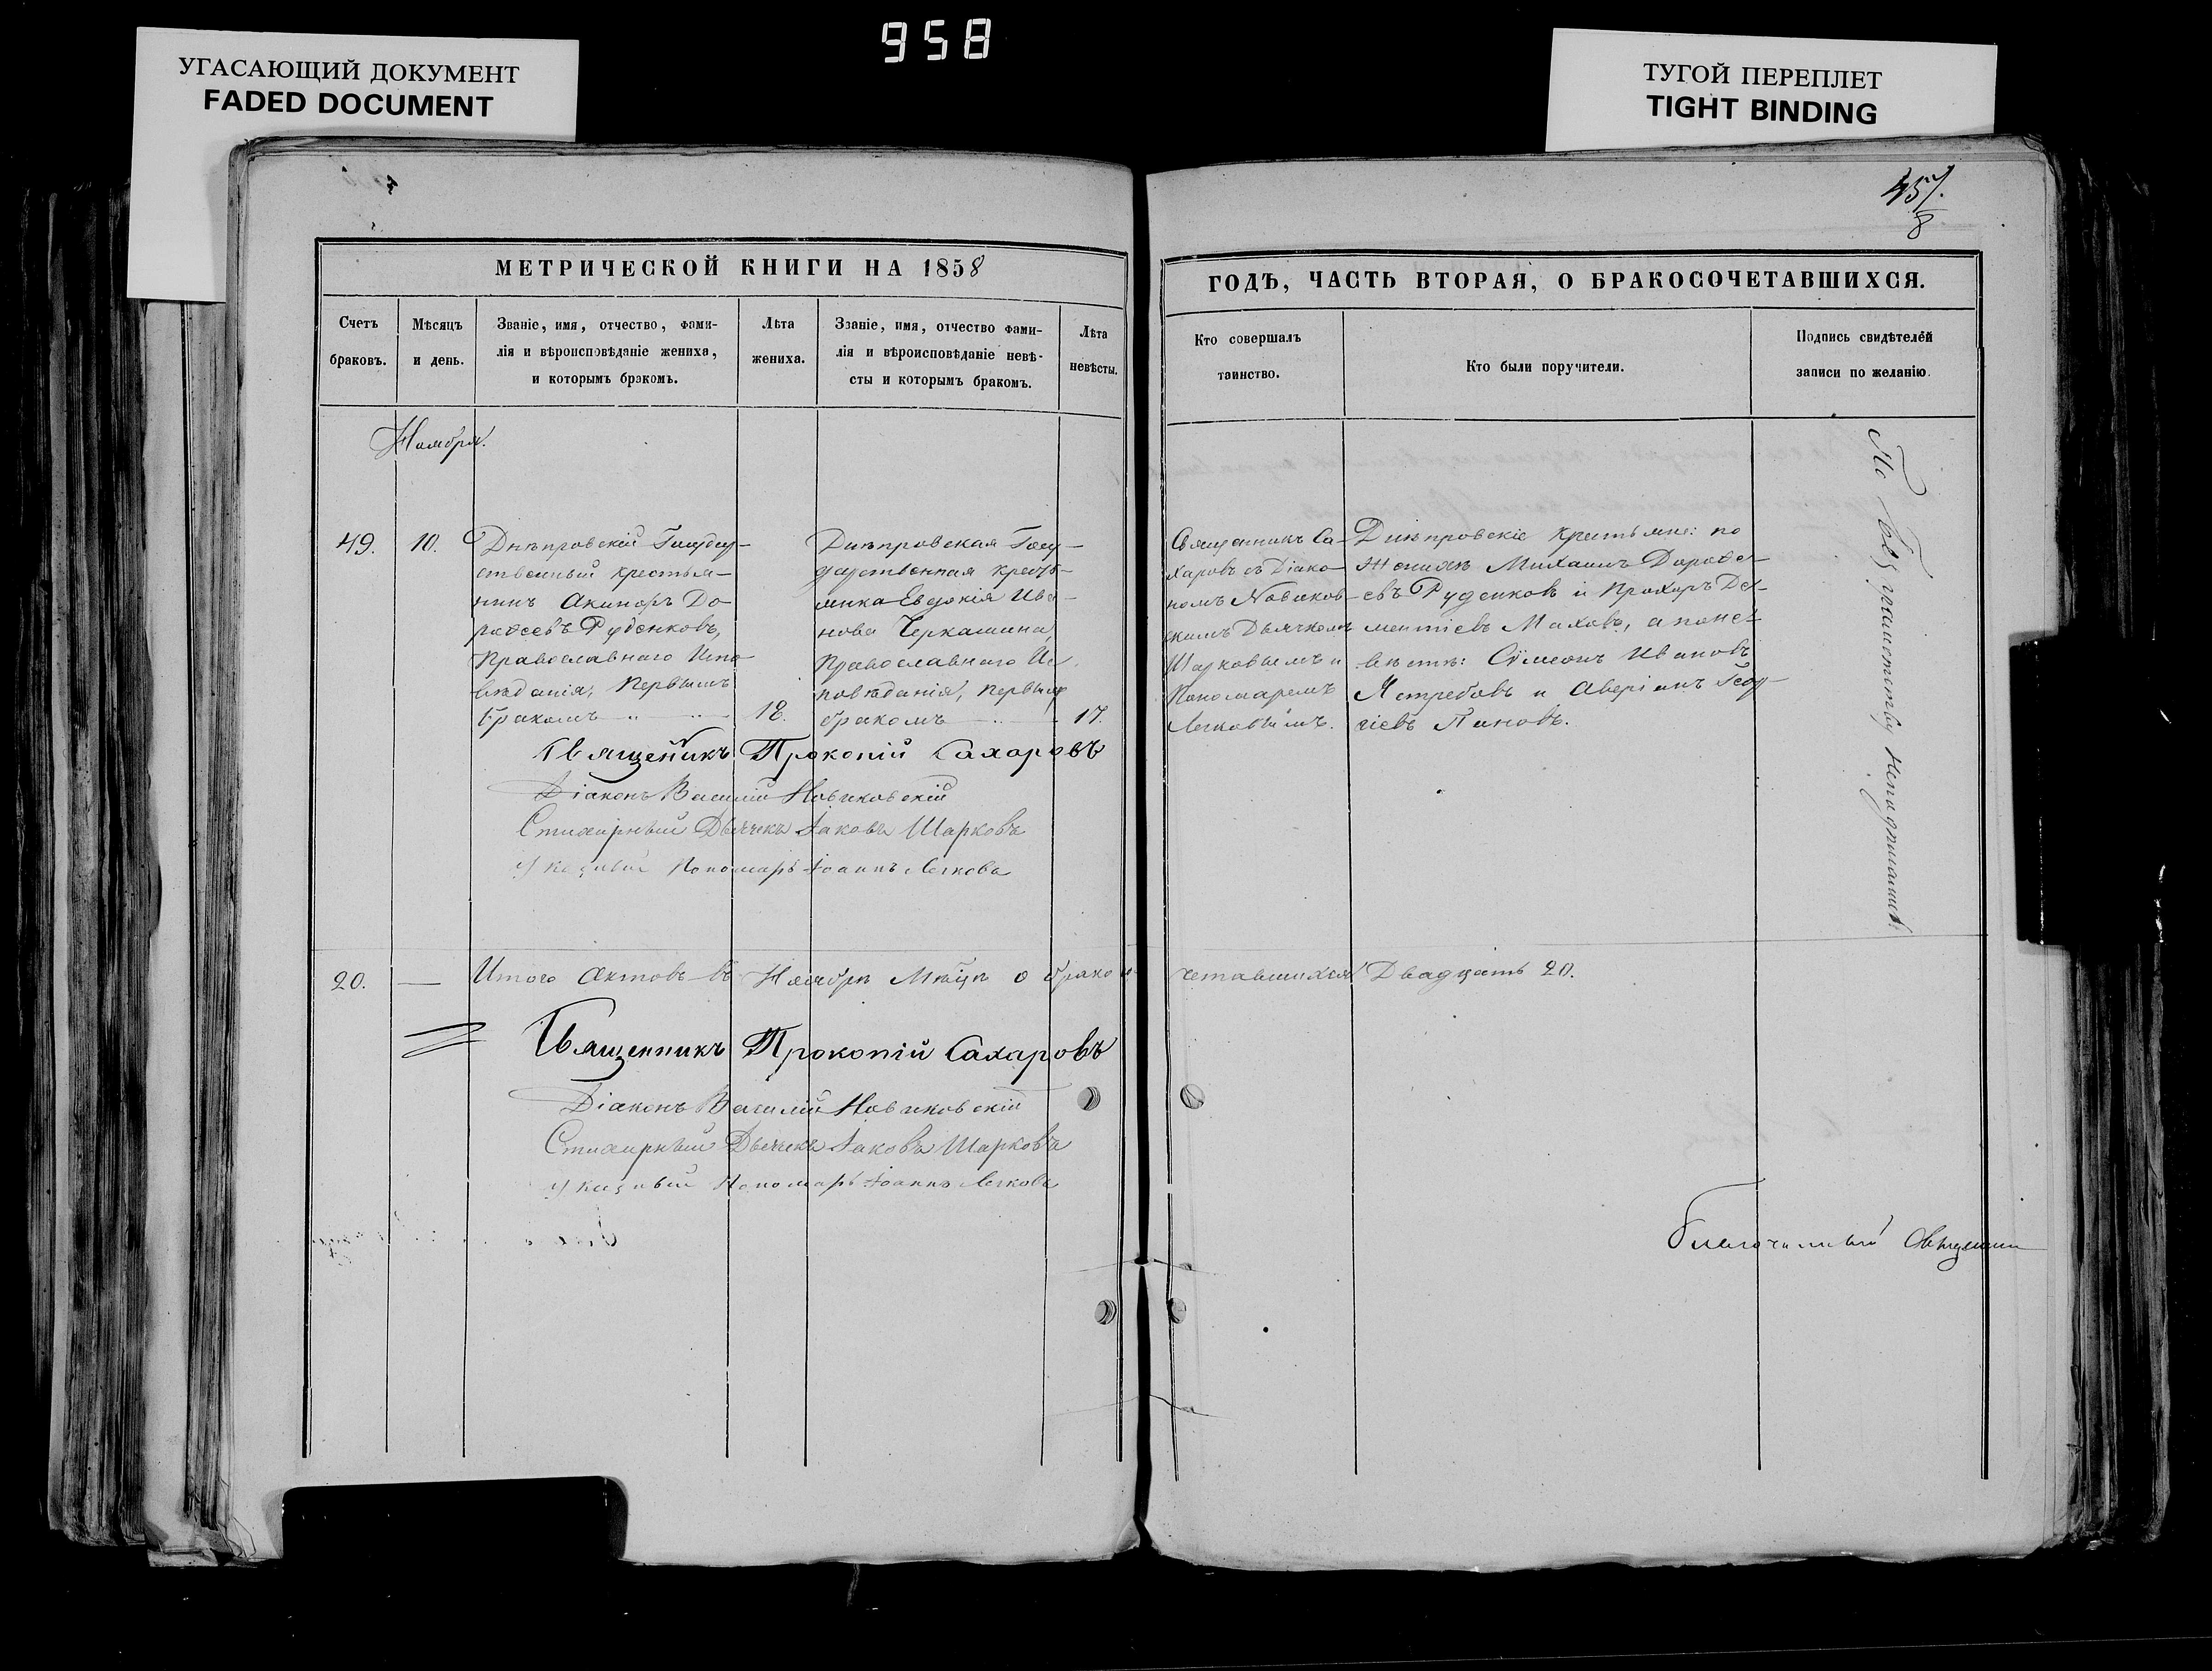 958
УГАСАЮЩИЙ ДОКУМЕНТ
FADED DOCUMENT
ТУГОЙ ПЕРЕПЛЕТ
TIGHT BINDING
457.
8
МЕТРИЧЕСКОЙ КНИГИ НА 1858
ГОДЪ, ЧАСТЬ ВТОРАЯ, О БРАКОСОЧЕТАВШИХСЯ.
Счетъ
браковъ.
Мѣсяцъ
и день.
Званіе, имя, отчество, фами-
лія и вѣроисповѣданіе жениха,
и которымъ бракомъ.
Лѣта
жениха.
Званіе, имя, отчество фами-
лія и вѣроисповѣданіе невѣ-
сты и которымъ бракомъ.
Лѣта
невѣсты.
Кто совершалъ
таинство.
Кто были поручители.
Подпись свидѣтелей
записи по желанію.
Ноября.
49.
10.
Днѣпровскій Государ-
ственный крестья-
нинъ Акиндръ До-
рофеевъ Руденковъ,
Православнаго Испо-
вѣданія, первымъ
бракомъ
18.
Днѣпровская Госу-
дарственная крестъ-
янка Евдокія Ива-
нова Черкашина,
Православнаго Ис-
повѣданія, первымъ
бракомъ
17.
Священникъ Са-
харовъ съ Діако-
номъ Новиков-
скимъ Дьячкомъ
Шарковымъ и
Пономаремъ
Легковымъ.
Днѣпровскіе крестьяне: по
женихѣ Михаилъ Дорофе-
евъ Руденковъ и Прохоръ Де-
ментіевъ Маховъ, а по не-
вѣстѣ: Сѵмеонъ Ивановъ
Ястребовъ и Аверіанъ Геор-
гіевъ Пановъ.
По безграмотству неподписались.
Священникъ Прокопій Сахаровъ
Діаконъ Василій Новиковскій
Стихарный Дьячекъ Іаковъ Шарковъ
Указный Пономарь Іоаннъ Легковъ
20.
Итого Актовъ въ Ноябрѣ Мѣсцѣ о бракосо
четавшихся Двадцать 20.
Священникъ Прокопій Сахаровъ
Діаконъ Василій Новиковскій
Стихарный Дьячекъ Іаковъ Шарковъ
Указный Пономарь Іоаннъ Легковъ
Благочинный Священни